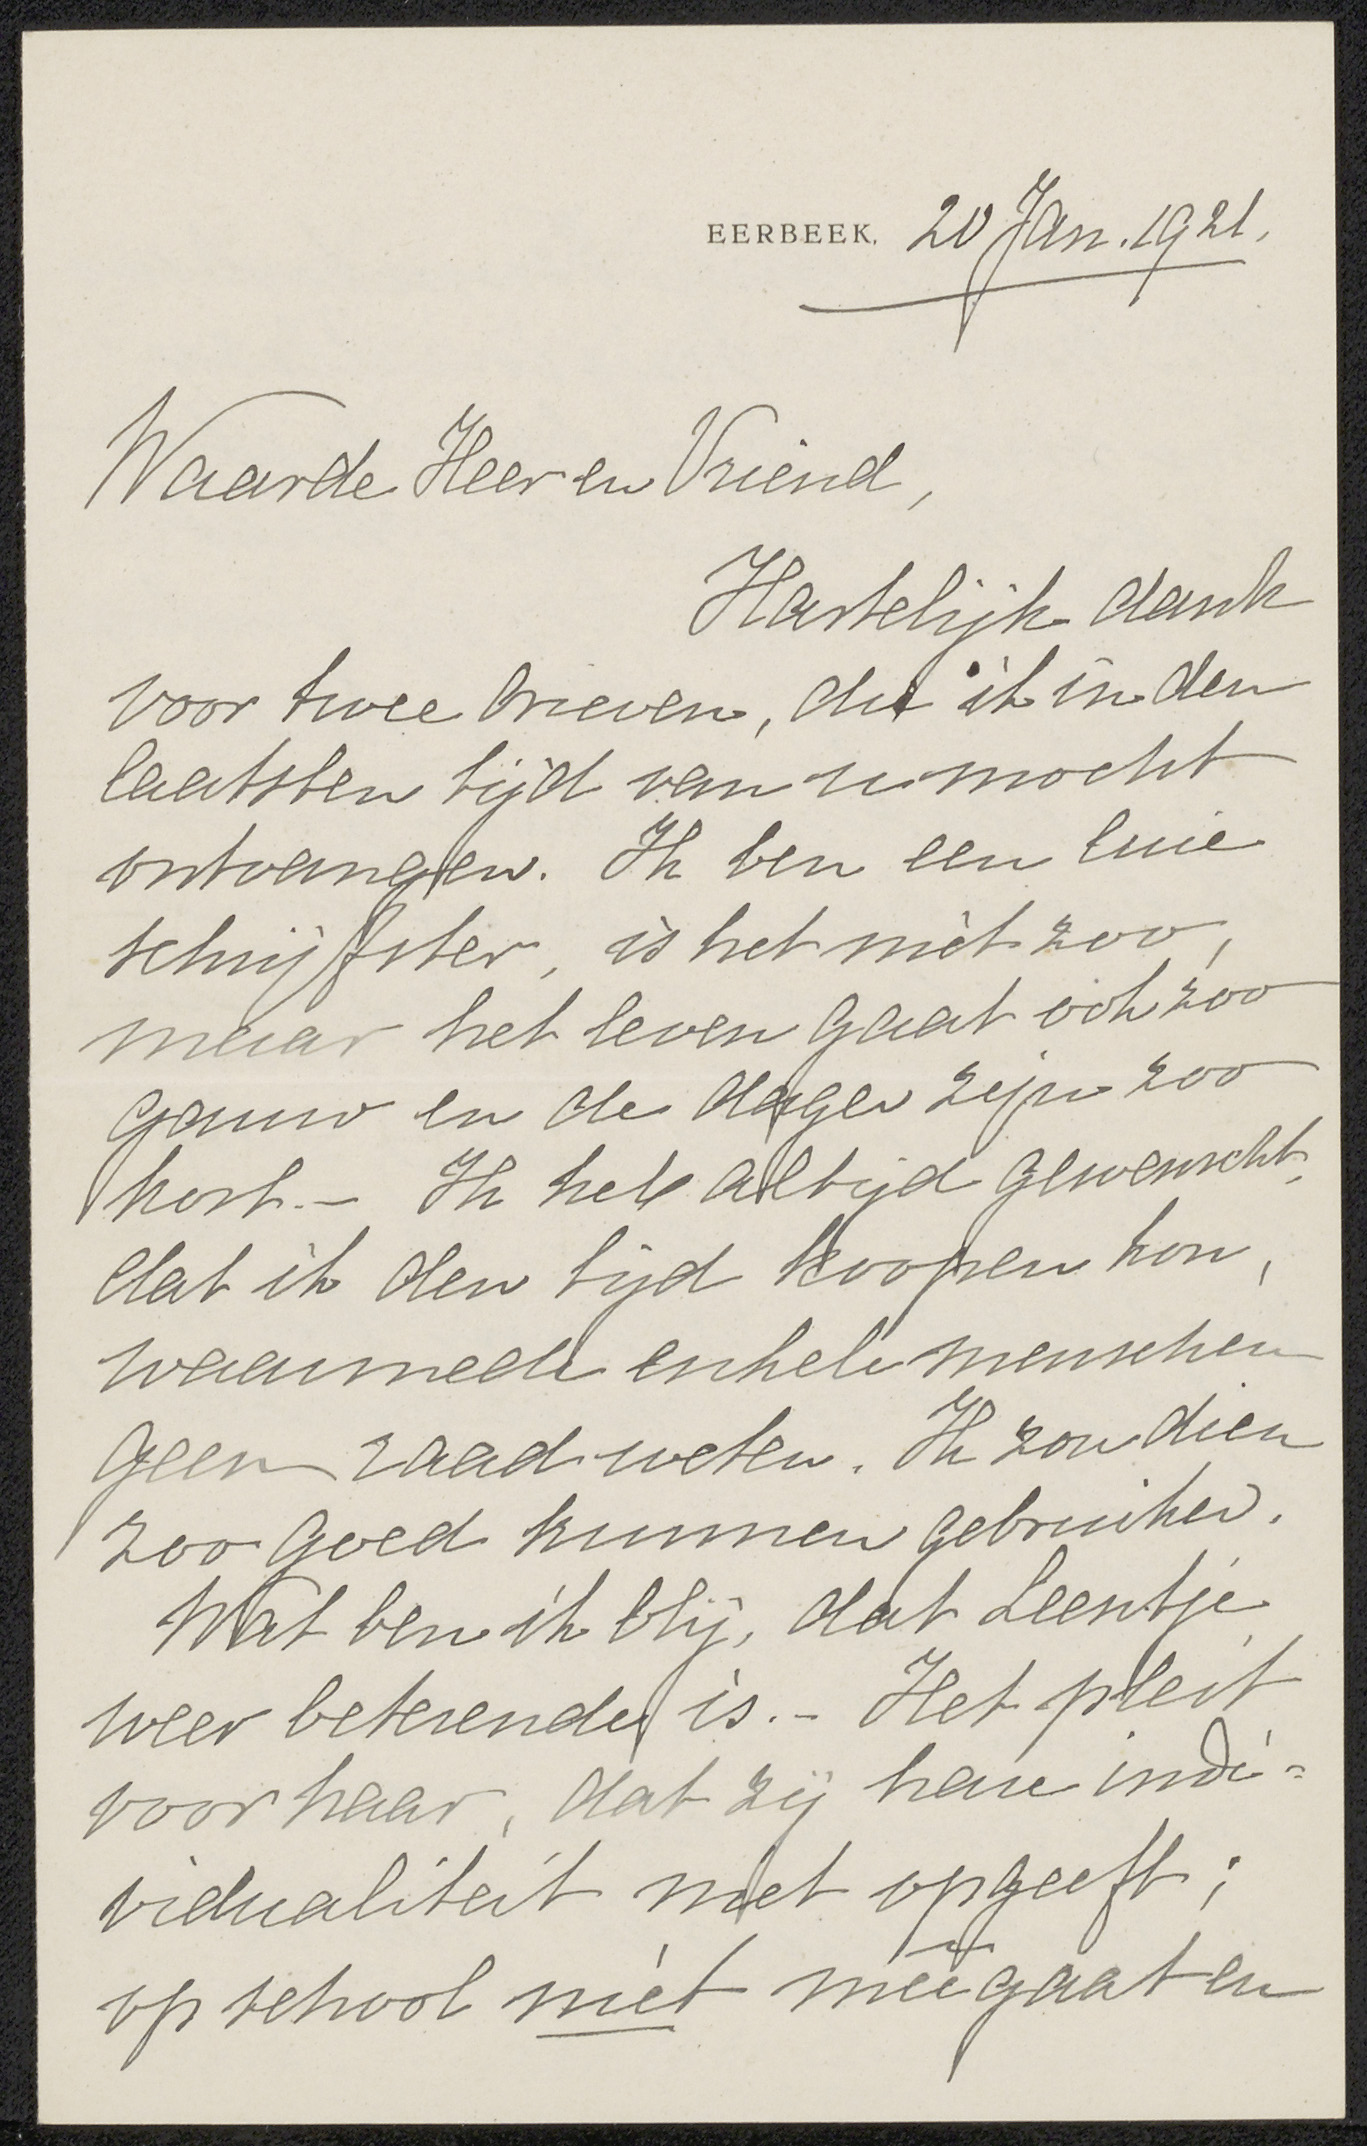 EERBEEK. 20 Jan. 1921.
Waarde Heer en Vriend,
Hartelijk dank
voor twee brieven, die ik in den
laatsten tijd van u mocht
ontvangen. Ik ben een luie
schrijfster, is het niet zoo,
maar het leven gaat ook zoo
gauw en de dagen zijn zoo
kort. - Ik heb altijd gewenscht,
dat ik den tijd koopen kon,
waarmede enkele menschen
geen raad weten. Ik zou dien
zoo goed kunnen gebruiken.
Wat ben ik blij, dat Leentje
weer beterende is. - Het pleit
voor haar, dat zij hare indi=
vidualiteit niet opgeeft;
op school niet meêgaat en